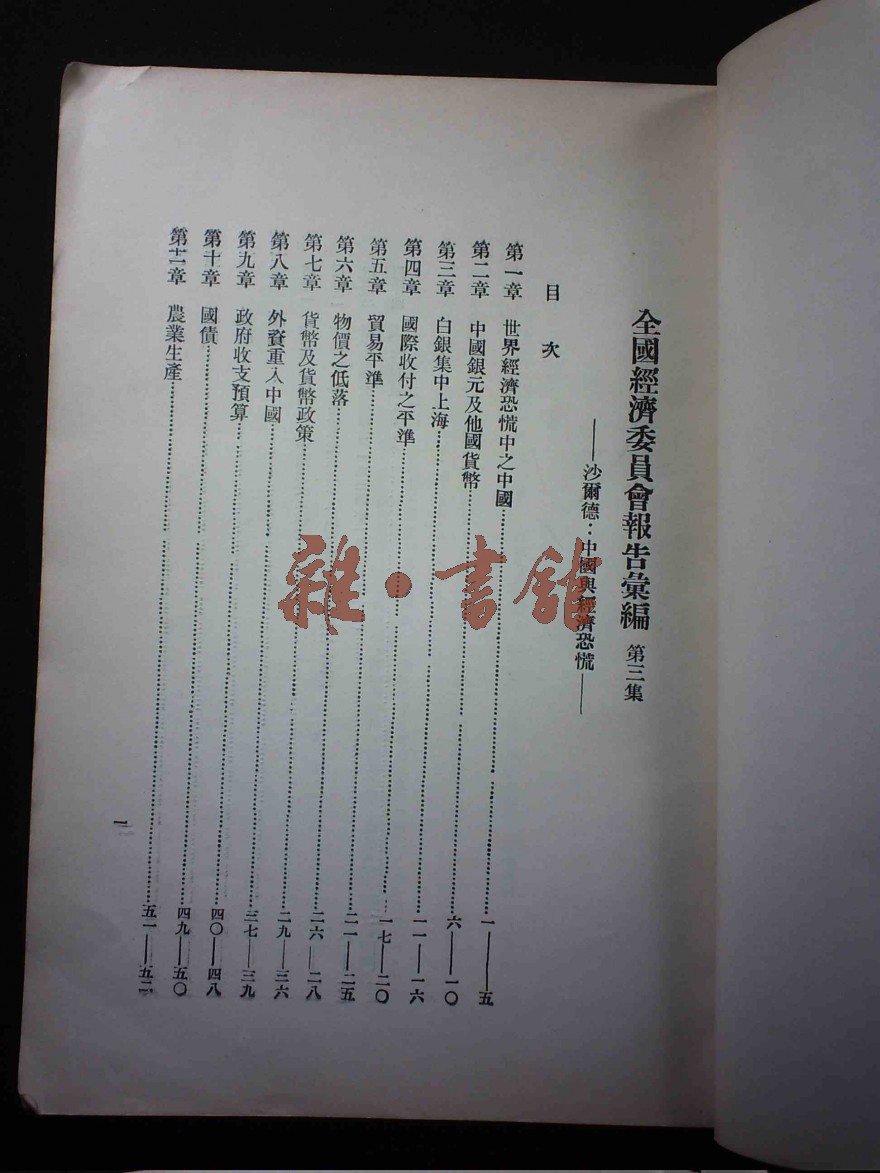 全國經濟委員會報告彙編 第三集
——沙爾德：中國與經濟恐慌——
目次
第一章 世界經濟恐慌中之中國……一——五
第二章 中國銀元及他國貨幣……六——一〇
第三章 白銀集中上海……一一——一六
第四章 國際收付之平準……一七——二〇
第五章 貿易平準……二一——二五
第六章 物價之低落……二六——二八
第七章 貨幣及貨幣政策……二九——三六
第八章 外資重入中國……三七——三九
第九章 政府收支預算……四〇——四八
第十章 國債……四九——五〇
第十一章 農業生產……五一——五二
一
雜·書館